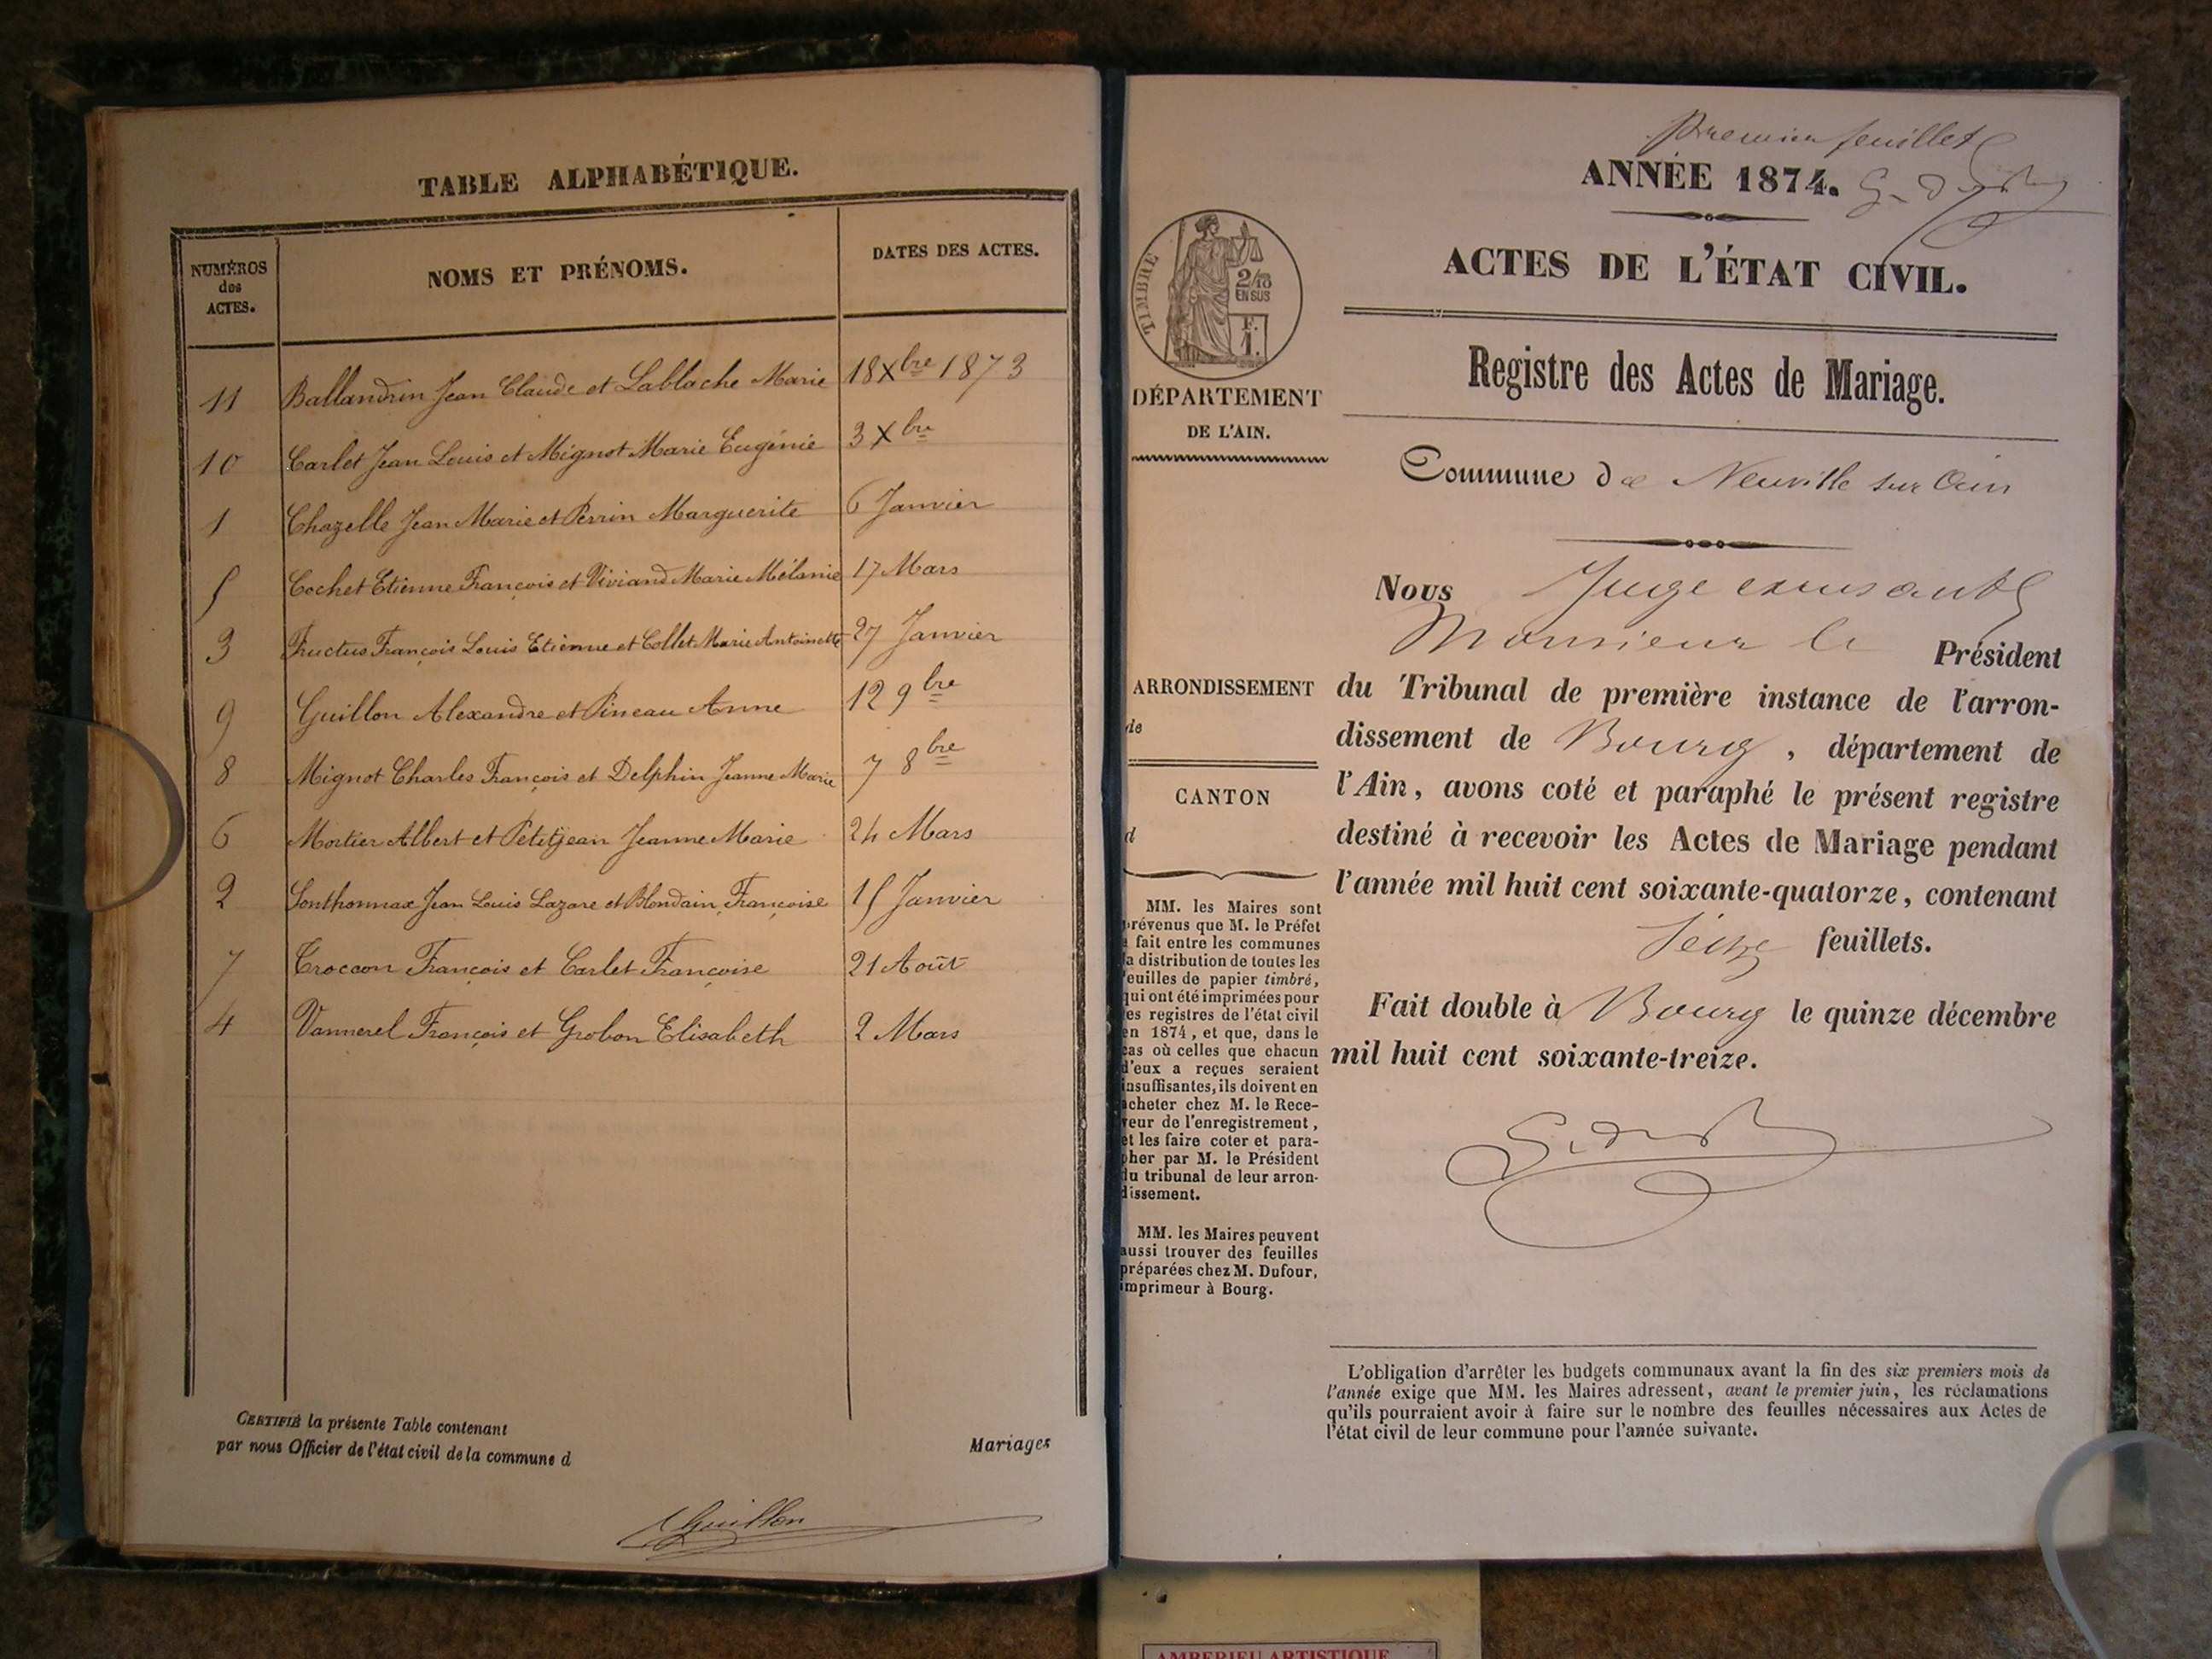 TABLE ALPHABÉTIQUE.
NUMÉROS
des
ACTES.
NOMS ET PRÉNOMS.
DATES DES ACTES.
11 Ballandrin Jean Claude et Lablache Marie 18 Xbre 1873
10 Carlet Jean Louis et Mignot Marie Eugénie 3 Xbre
1 Chazelle Jean Marie et Perrin Marguerite 6 Janvier
5 Cochet Etienne François et Viviand Marie Mélanie 17 Mars
3 Fructus François Louis Etienne et Collet Marie Antoinette 27 Janvier
9 Guillon Alexandre et Pineau Anne 12 9bre
8 Mignot Charles François et Delphin Jeanne Marie 7 8bre
6 Mortier Albert et Petitjean Jeanne Marie 24 Mars
2 Sonthonnax Jean Louis Lazare et Blondain Françoise 15 Janvier
7 Troccon François et Carlet Françoise 21 Août
4 Vannerel François et Grobon Elisabeth 2 Mars
CERTIFIÉ la présente Table contenant Mariages
par nous Officier de l'état civil de la commune d
Guillon
premier feuillet
ANNÉE 1874.
ACTES DE L'ÉTAT CIVIL.
Registre des Actes de Mariage.
Commune de Neuville sur Ain
TIMBRE
2/10
EN SUS
F.
1.
DÉPARTEMENT
DE L'AIN.
ARRONDISSEMENT
de
CANTON
d
MM. les Maires sont
prévenus que M. le Préfet
a fait entre les communes
la distribution de toutes les
feuilles de papier timbré,
qui ont été imprimées pour
les registres de l'état civil
en 1874, et que, dans le
cas où celles que chacun
d'eux a reçues seraient
insuffisantes, ils doivent en
acheter chez M. le Rece-
veur de l'enregistrement,
et les faire coter et para-
pher par M. le Président
du tribunal de leur arron-
dissement.
MM. les Maires peuvent
aussi trouver des feuilles
préparées chez M. Dufour,
imprimeur à Bourg.
Nous Juge
Monsieur le Président
du Tribunal de première instance de l'arron-
dissement de Bourg, département de
l'Ain, avons coté et paraphé le présent registre
destiné à recevoir les Actes de Mariage pendant
l'année mil huit cent soixante-quatorze, contenant
seize feuillets.
Fait double à Bourg le quinze décembre
mil huit cent soixante-treize.
L'obligation d'arrêter les budgets communaux avant la fin des six premiers mois de
l'année exige que MM. les Maires adressent, avant le premier juin, les réclamations
qu'ils pourraient avoir à faire sur le nombre des feuilles nécessaires aux Actes de
l'état civil de leur commune pour l'année suivante.
AMBERIEU ARTISTIQUE